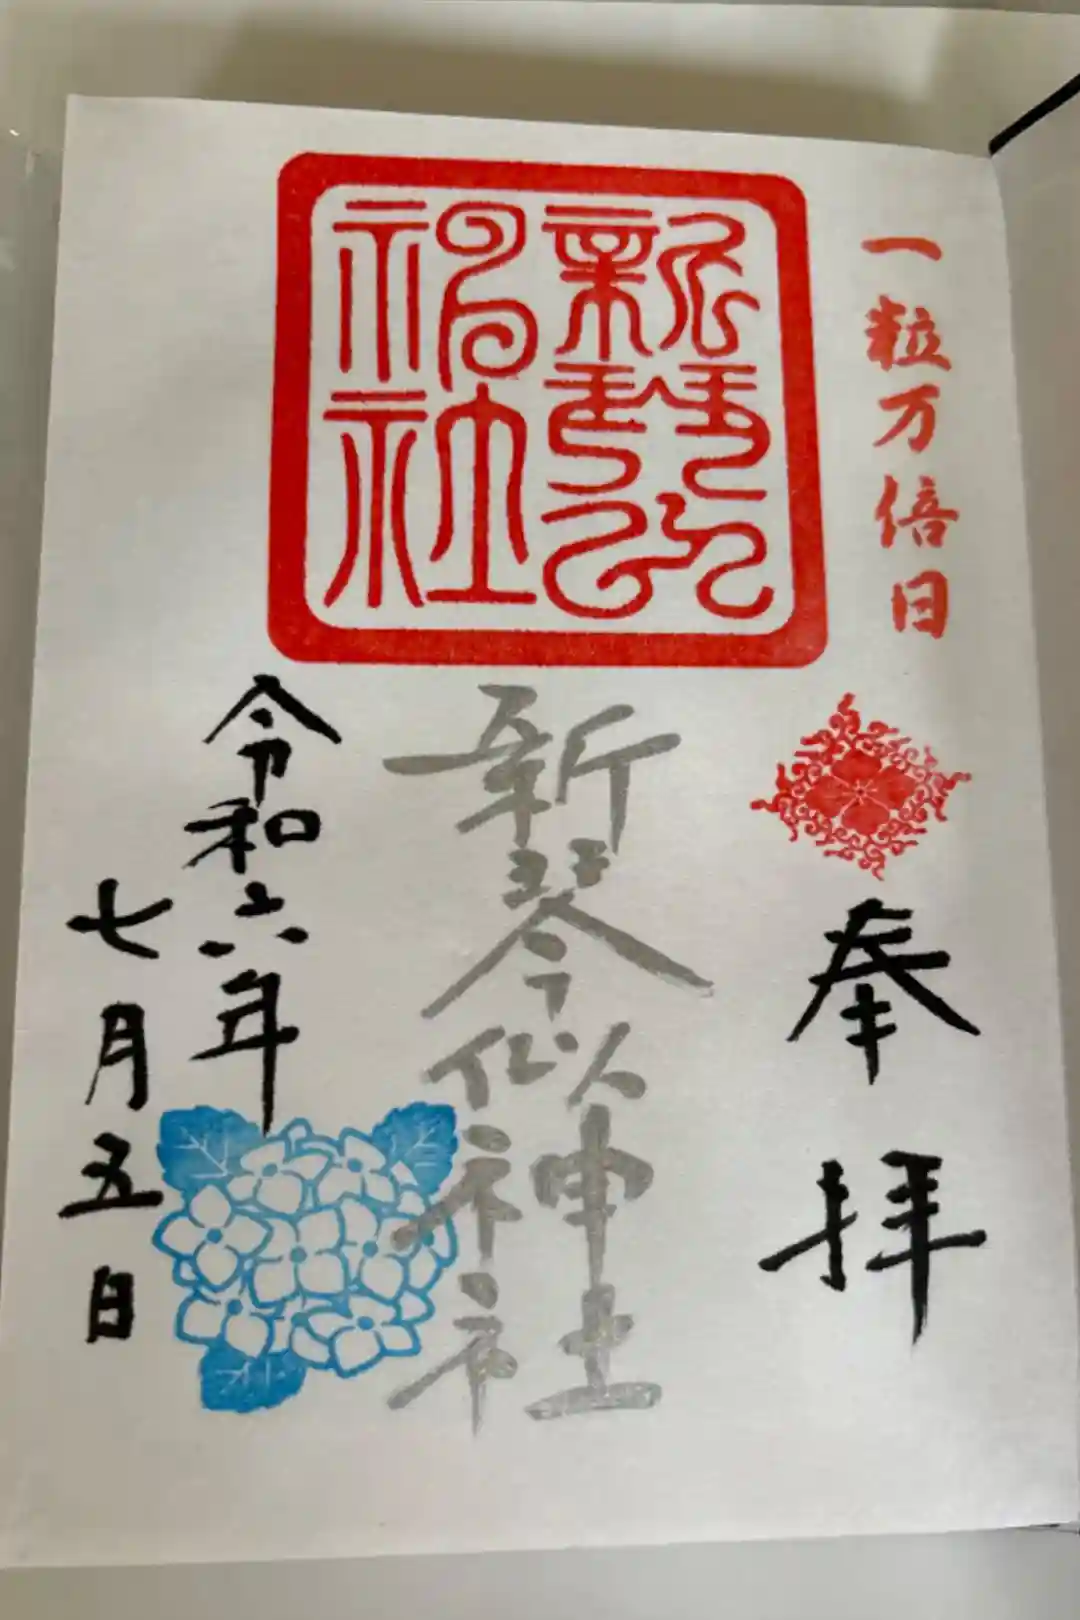 一粒万倍日
奉拝
新琴似神社
新琴似神社
令和六年
七月五日